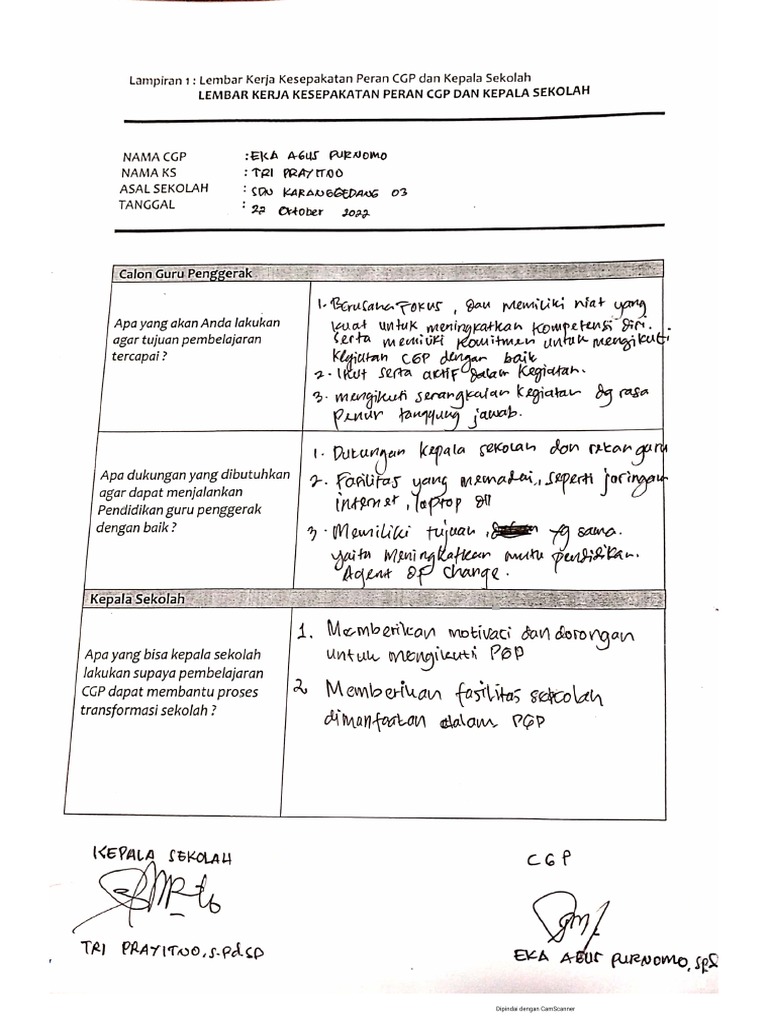 Lampiran 1 : Lembar Kerja Kesepakatan Peran CGP dan Kepala Sekolah
LEMBAR KERJA KESEPAKATAN PERAN CGP DAN KEPALA SEKOLAH
NAMA CGP : EKA AGUS PURNOMO
NAMA KS : TRI PRAYITNO
ASAL SEKOLAH : SDN KARANGGEDANG 03
TANGGAL : 22 Oktober 2022
Calon Guru Penggerak
Apa yang akan Anda lakukan
agar tujuan pembelajaran
tercapai ?
1. Berusaha Fokus, dan memiliki niat yang
kuat untuk meningkatkan kompetensi diri.
serta memiliki komitmen untuk mengikuti
kegiatan CGP dengan baik
2. Ikut serta aktif dalam kegiatan.
3. mengikuti serangkaian kegiatan dg rasa
penuh tanggung jawab.
Apa dukungan yang dibutuhkan
agar dapat menjalankan
Pendidikan guru penggerak
dengan baik ?
1. Dukungan kepala sekolah dan rekan guru
2. Fasilitas yang memadai, seperti jaringan
internet, laptop dll
3. Memiliki tujuan, yg sama.
yaitu meningkatkan mutu pendidikan.
Agent of change.
Kepala Sekolah
Apa yang bisa kepala sekolah
lakukan supaya pembelajaran
CGP dapat membantu proses
transformasi sekolah ?
1. Memberikan motivasi dan dorongan
untuk mengikuti PGP
2 Memberikan fasilitas sekolah
dimanfaatan dalam PGP
KEPALA SEKOLAH
TRI PRAYITNO, S.Pd SD
CGP
EKA AGUS PURNOMO, SPd
Dipindai dengan CamScanner